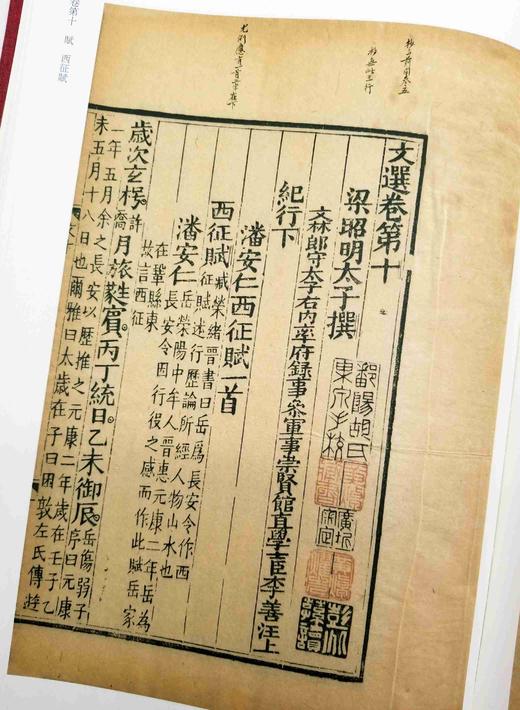 卷第十 賦 西征賦
文選卷第十
梁昭明太子撰
文林郎守太子右内率府録事參軍事崇賢館直學士臣李善注上
紀行下
潘安仁西征賦一首
西征賦臧榮緒晉書曰岳爲長安令作西
征賦述行歷論所經人物山水也
潘安仁岳榮陽中牟人晉惠元康二年岳爲
長安令因行役之感而作此賦岳家
在鞏縣東
故言西征
歲次玄枵許喬月旅蕤賓丙丁統日乙未御辰岳傷弱子序曰元康
二年五月余之長安以歷推之元康二年歲在壬子乙
未五月十八日也爾雅曰太歲在子曰困敦左氏傳
鄱陽胡氏